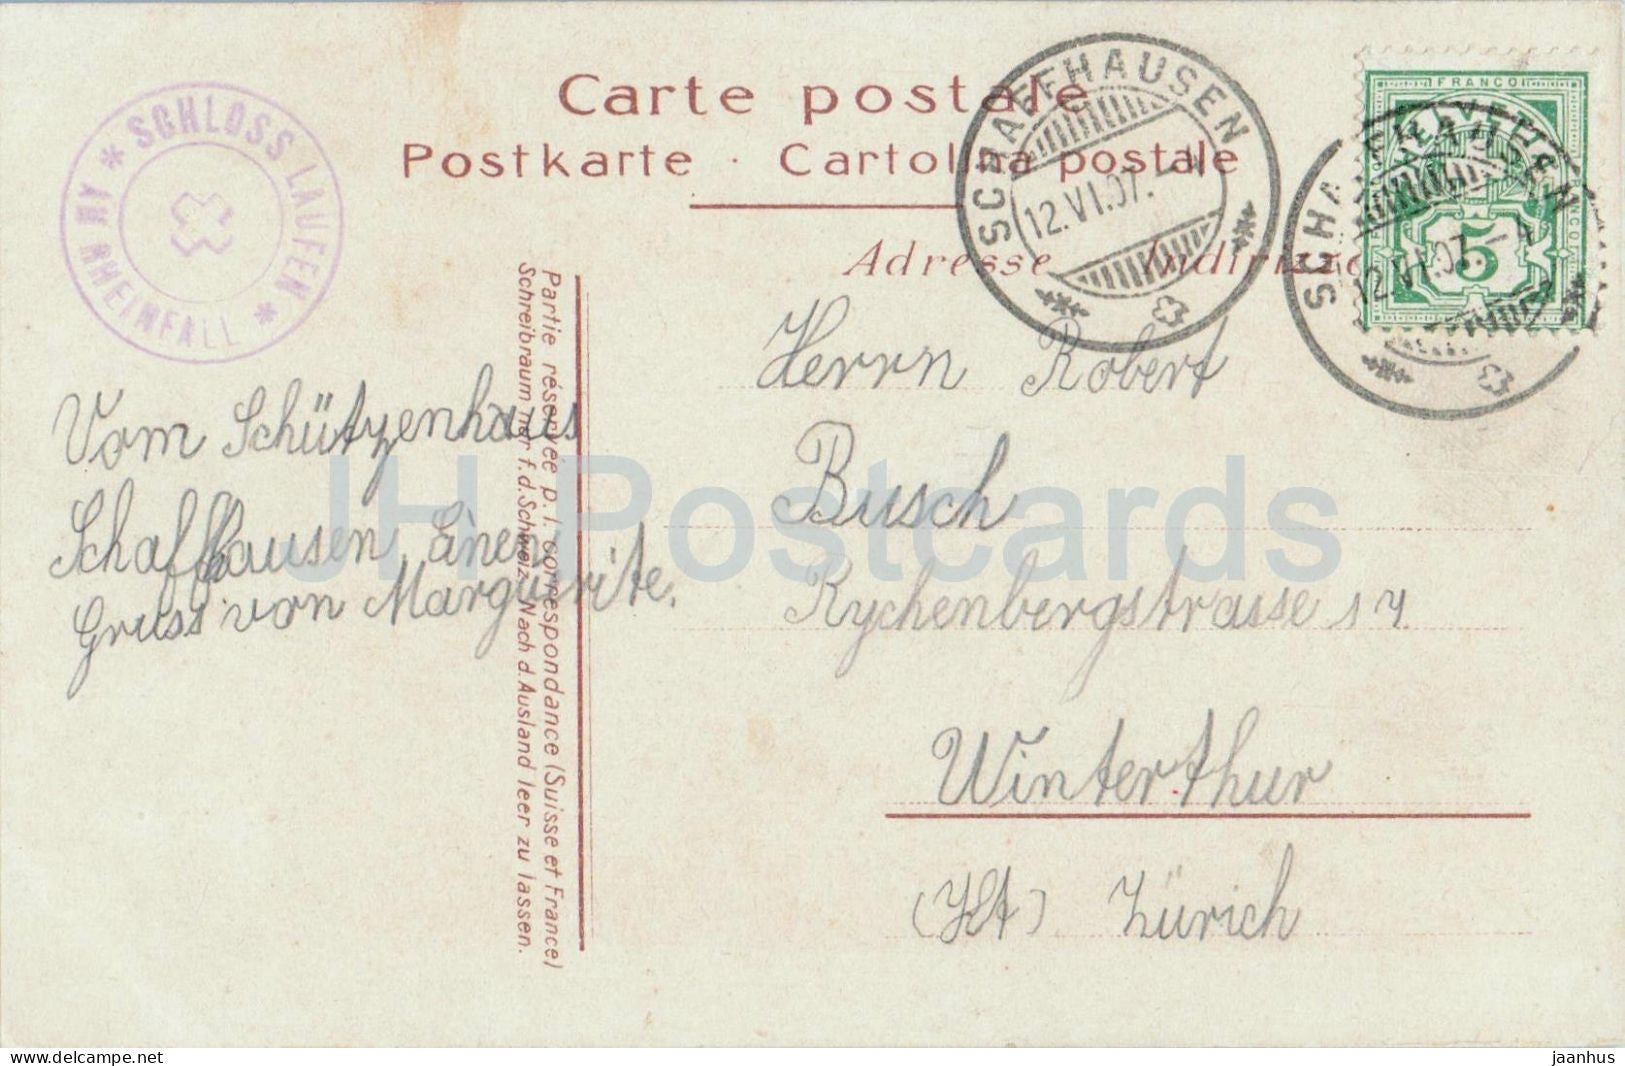 Carte postale
Postkarte · Cartolina postale
Adresse
SCHLOSS LAUFEN
AM RHEINFALL
SCHAFFHAUSEN
12.VI.07.
FRANCO
HELVETIA
5
12.VI.07.-4
Partie réservée p. l. correspondance (Suisse et France)
Schreibraum nur f. d. Schweiz. Nach d. Ausland leer zu lassen.
Vom Schützenhaus
Schaffhausen Einen
Gruss von Marguerite.
Herrn Robert
Busch
Rychenbergstrasse 17
Winterthur
(Kt) Zürich
JH Postcards
www.delcampe.net
jaanhus